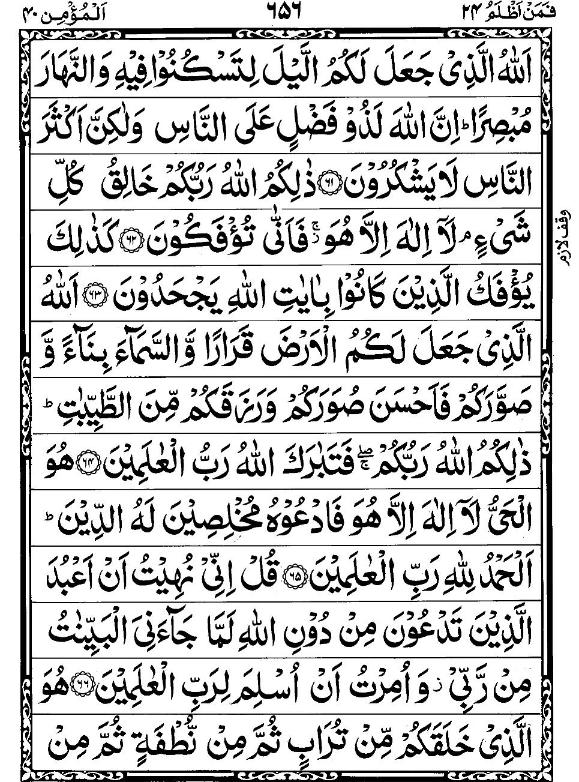 فَمَنْ اَظْلَمُ ٢٤ ٦٥٦ اَلْمُؤْمِن ٤٠
اَللّٰهُ الَّذِىْ جَعَلَ لَكُمُ الَّيْلَ لِتَسْكُنُوْا فِيْهِ وَالنَّهَارَ
مُبْصِرًا ؕ اِنَّ اللّٰهَ لَذُوْ فَضْلٍ عَلَى النَّاسِ وَلٰكِنَّ اَكْثَرَ
النَّاسِ لَا يَشْكُرُوْنَ ﴿٦١﴾ ذٰلِكُمُ اللّٰهُ رَبُّكُمْ خَالِقُ كُلِّ
شَىْءٍ ۘ لَاۤ اِلٰهَ اِلَّا هُوَ ۚ فَاَنّٰى تُؤْفَكُوْنَ ﴿٦٢﴾ كَذٰلِكَ
وقف لازم
يُؤْفَكُ الَّذِيْنَ كَانُوْا بِاٰيٰتِ اللّٰهِ يَجْحَدُوْنَ ﴿٦٣﴾ اَللّٰهُ
الَّذِىْ جَعَلَ لَكُمُ الْاَرْضَ قَرَارًا وَّالسَّمَآءَ بِنَآءً وَّ
صَوَّرَكُمْ فَاَحْسَنَ صُوَرَكُمْ وَرَزَقَكُمْ مِّنَ الطَّيِّبٰتِ ؕ
ذٰلِكُمُ اللّٰهُ رَبُّكُمْ ۖۚ فَتَبٰرَكَ اللّٰهُ رَبُّ الْعٰلَمِيْنَ ﴿٦٤﴾ هُوَ
الْحَىُّ لَاۤ اِلٰهَ اِلَّا هُوَ فَادْعُوْهُ مُخْلِصِيْنَ لَهُ الدِّيْنَ ؕ
اَلْحَمْدُ لِلّٰهِ رَبِّ الْعٰلَمِيْنَ ﴿٦٥﴾ قُلْ اِنِّىْ نُهِيْتُ اَنْ اَعْبُدَ
الَّذِيْنَ تَدْعُوْنَ مِنْ دُوْنِ اللّٰهِ لَمَّا جَآءَنِىَ الْبَيِّنٰتُ
مِنْ رَّبِّىْ ؗ وَاُمِرْتُ اَنْ اُسْلِمَ لِرَبِّ الْعٰلَمِيْنَ ﴿٦٦﴾ هُوَ
الَّذِىْ خَلَقَكُمْ مِّنْ تُرَابٍ ثُمَّ مِنْ نُّطْفَةٍ ثُمَّ مِنْ